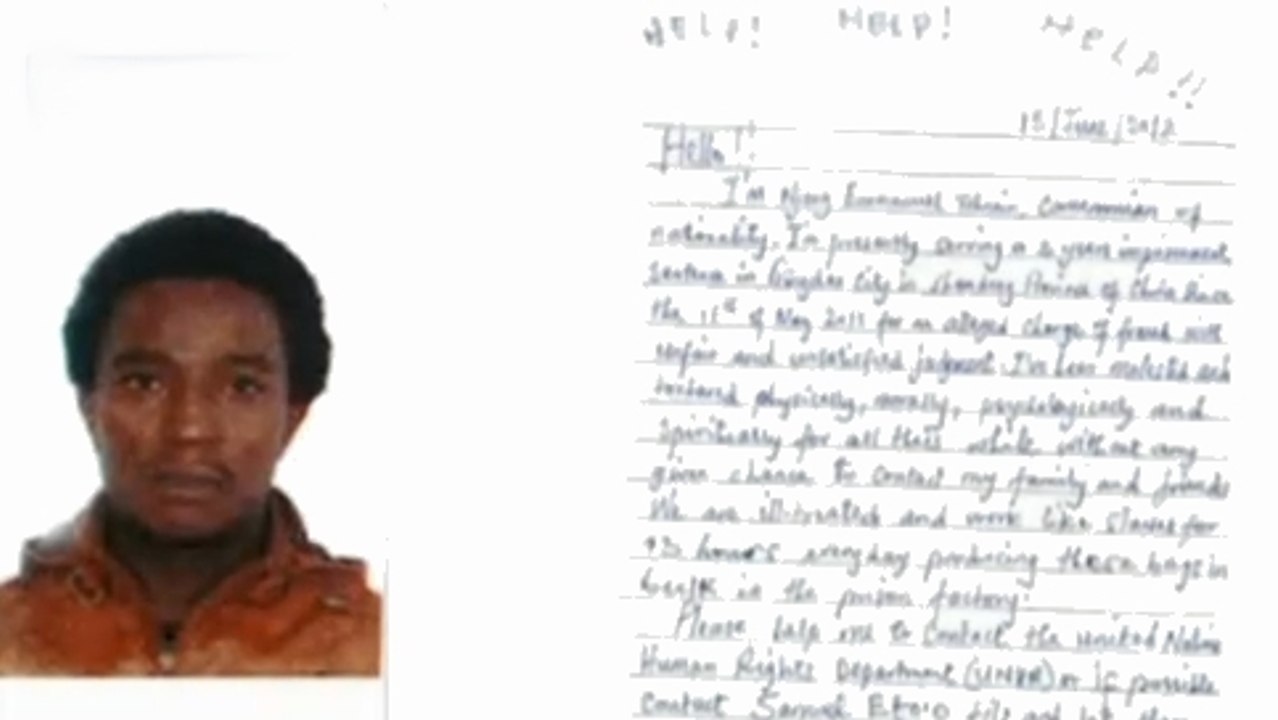 HELP! HELP! HELP!!
15/June/2012
Hello!
I'm Njong Emmanuel Tohnain, Cameroonian of
nationality. I'm presently serving a 3 years imprisonment
sentence in Qingdao City in Shandong Province of China since
the 11st of May 2011 for an alleged charge of fraud with
unfair and unsatisfied judgment. I've been molested and
tortured physically, morally, psychologically and
spiritually for all this while without any
given chance to contact my family and friends
We are ill-treated and work like slaves for
13 hours everyday producing these bags in
bulk in the prison factory.
Please help me to contact the United Nations
Human Rights Department (UNHR) or if possible
contact Samuel Eto'o fils and let them